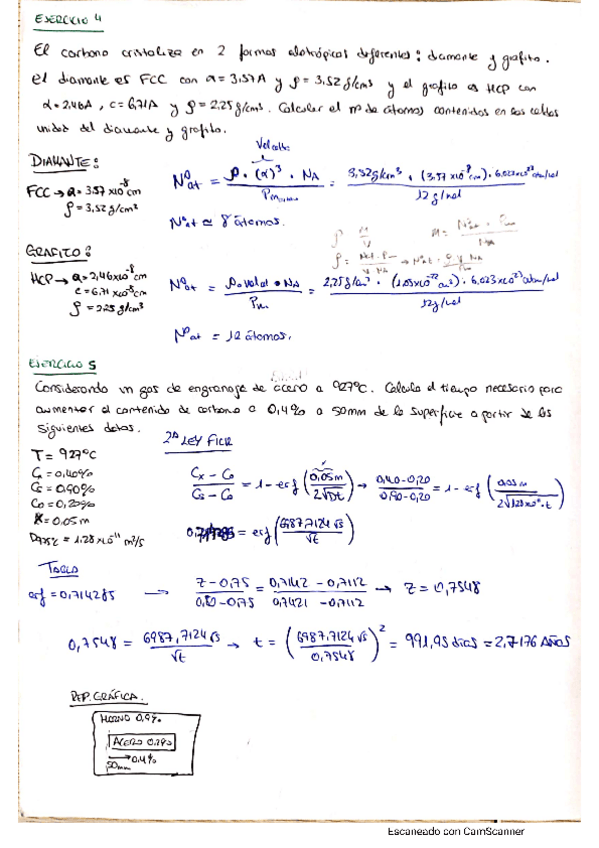 EJERCICIO 4
El carbono cristaliza en 2 formas alotrópicas diferentes: diamante y grafito.
el diamante es FCC con a = 3,57A y ρ = 3,52 g/cm3 y el grafito es HCP con
a = 2,46A, c = 6,71A y ρ = 2,25 g/cm3. Calcular el nº de átomos contenidos en las celdas
unidad del diamante y grafito.
DIAMANTE:
FCC → a = 3.57 x10⁻⁸ cm
ρ = 3,52 g/cm³
Nºat = ρ · (a)³ · NA / Pm = 3,52g/cm³ · (3.57 x10⁻⁸ cm)³ · 6.023x10²³ atm/mol / 12 g/mol
Nºat ≃ 8 átomos.
GRAFITO:
HCP → a = 2,46x10⁻⁸ cm
c = 6.71 x10⁻⁸ cm
ρ = 2.25 g/cm³
Nºat = ρ · NA / Pm = 2,25 g/cm³ · 6.023x10²³ atm/mol / 12g/mol
Nºat = 12 átomos.
EJERCICIO 5
Considerando un gas de engranaje de acero a 927ºC. Calcula el tiempo necesario para
aumentar el contenido de carbono a 0,4% a 50mm de la superficie a partir de los
siguientes datos.
2ª LEY FICK
T = 927ºC
Cx = 0,40%
Cs = 0.90%
Co = 0,20%
X = 0.05 m
D = 1.28x10⁻¹¹ m²/s
Cx - Co / Cs - Co = 1 - erf (0,05m / 2√Dt) → 0,40-0,20 / 0.90-0,20 = 1 - erf (0.05m / 2√1.28x10⁻¹¹·t)
= erf (6987,7124 √s / √t)
TABLA
erf = 0,714285 → Z - 0,75 / 0,80 - 0,75 = 0,7142 - 0,7112 / 0,7421 - 0,7112 → Z = 0,7548
0,7548 = 6987,7124 √s / √t → t = (6987.7124 √s / 0.7548)² = 991,95 días = 2,7176 AÑOS
REP. GRÁFICA.
HORNO 0,9%
ACERO 0.2%
→ 0.4%
50mm
Escaneado con CamScanner